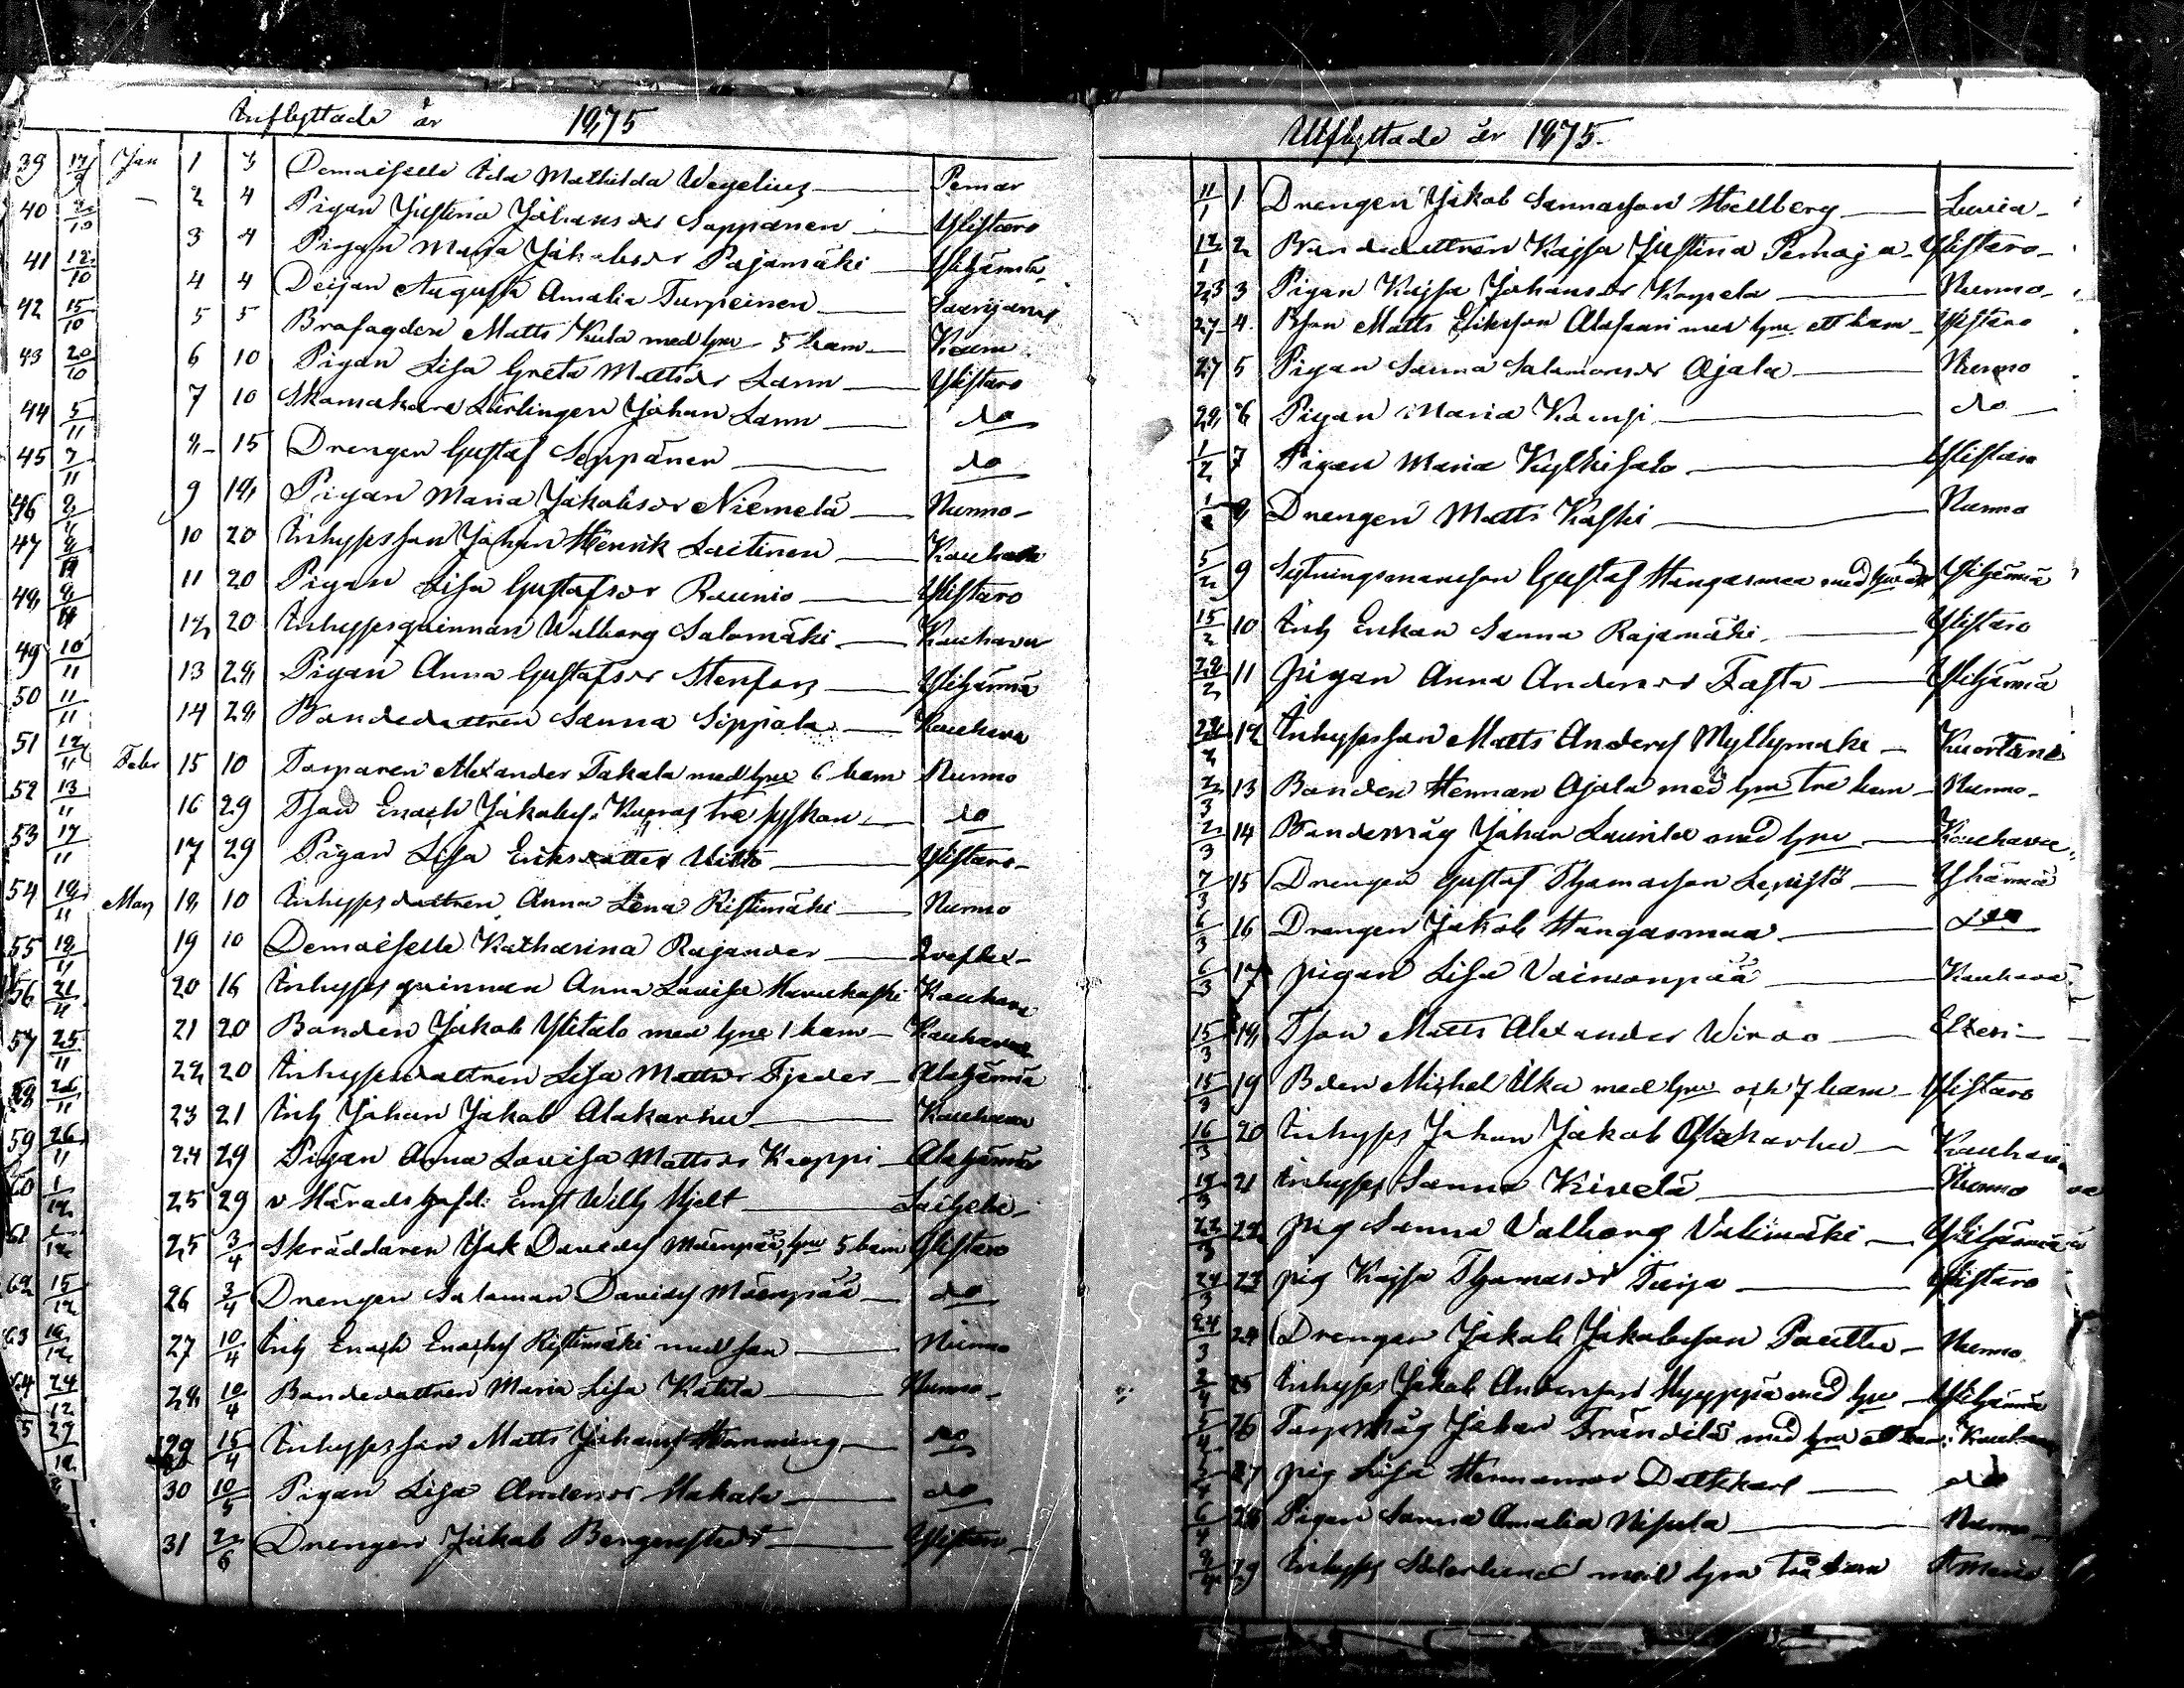 Inflyttade år 1875
39 17/9 Jan 1 3 Demoiselle Ida Mathilda Wegelius Pemar
40 2/10 - 2 4 Pigan Justina Johansdr Seppänen Ylistaro
41 12/10 3 4 Pigan Maria Jakobsdr Pajamäki Ylihärmä
42 15/10 4 4 Deijan Augusta Amalia Turpeinen Saarijärvi
43 20/10 5 5 Brofogden Matts Kula med hru 5 barn
44 5/11 6 10 Pigan Lisa Greta Mattsdr Lann Ylistaro
45 7/11 7 10 Skomakare Lärlingen Johan Lann do
46 8 15 Drengen Gustaf Seppänen do
47 9 18 Pigan Maria Jakobsdr Niemelä Nurmo
48 10 20 Inhyses son Johan Henrik Laitinen Kauhava
49 10/11 11 20 Pigan Lisa Gustafsdr Raunio Ylistaro
50 11/11 12 20 Inhysesqvinnan Walborg Salomäki Kauhava
51 12/11 13 28 Pigan Anna Gustafsdr Stenfors Ylihärmä
52 13/11 14 28 Bondedottren Sanna Sippola Kauhava
53 17/11 Febr 15 10 Torparen Alexander Takala med hru 6 barn Nurmo
54 18/11 16 29 Tson Enoch Jakobss. Kupras tre syskon do
55 18/11 17 29 Pigan Lisa Eriksdotter Uitto Ylistaro
56 21/11 Mars 18 10 Inhyses dottren Anna Lena Ristimäki Nurmo
57 25/11 19 10 Demoiselle Katharina Rajander
58 26/11 20 16 Inhyses qvinnan Anna Lovisa Kauhava
59 26/11 21 20 Bonden Jakob Ylitalo med hru 1 barn Kauhava
60 1/12 22 20 Inhysesdottren Lisa Mattsdr Fjeder Alahärmä
61 23 21 Inh Johan Jakob Alakarhu Kauhava
62 15/12 24 29 Pigan Anna Lovisa Mattsdr Kroppi Alahärmä
63 25 29 v Häradshöfd: Ernst Wilh Hjelt Laihela
64 24/12 25 3/4 Skräddaren Jak Davids Mäenpää, hru 5 barn Ylistaro
29/12 26 3/4 Drengen Salomon Davids Mäenpää do
27 10/4 Inh Enoch Enochss Ristimäki med son Nurmo
28 10/4 Bondedottren Maria Lisa Katila Nurmo
29 15/4 Inhyses son Matts Johanss Hemming do
30 10/5 Pigan Lisa Andersdr Makala do
31 2/6 Drengen Jakob Bergenstedt Ylistaro
Utflyttade år 1875.
11/1 1 Drengen Jakob Sannasson Hellberg Luvia
12/1 2 Bondedottren Kajsa Justina Pernaja Ylistaro
23 3 Pigan Kajsa Johansdr Korpela Nurmo
27 4 Bson Matts Eriksson Alasaari med hru ett barn Ylistaro
27 5 Pigan Sanna Salomonsdr Ojala Nurmo
28 6 Pigan Maria do
1/2 7 Pigan Maria Kylkisalo Ylistaro
1/2 8 Drengen Matts Koski Nurmo
5/2 9 Sytningsmansson Gustaf Hangasmaa med hru Ylihärmä
15/2 10 Inh Enkan Sanna Rajamäki Ylistaro
22/2 11 Pigan Anna Andersdr Fasta Ylihärmä
12 Inhyses son Matts Anders Myllymäki Kuortane
2/3 13 Bonden Herman Ojala med hru tre barn Nurmo
2/3 14 Bondemåg Johan Laurila med hru Kauhava
7/3 15 Drengen Gustaf Thomasson Lepistö Ylihärmä
6/3 16 Drengen Jakob Hangasmaa do
6/3 17 Pigan Lisa Vaimonpää Kauhava
15/3 18 Tson Matts Alexander Wirdo Etseri
15/3 19 Bden Michel Ilka med hru och 7 barn Ylistaro
16/3 20 Inhyses Johan Jakob Alakarhu Kauhava
21 Inhyses Sanna Kivelä Nurmo
22/3 22 Pig Sanna Valborg Välimäki Ylihärmä
24/3 23 Pig Kajsa Thomasdr Ylistaro
24/3 24 Drengen Jakob Jakobsson Nurmo
25 Inhyses Jakob Andersson Hyyppiä med hru Ylihärmä
26 Torpmåg Johan Frändilä med hru ett barn Kauhava
27 Pig Lisa Hermansdr Dahlkarl do
6/4 28 Pigan Sanna Amalia Nisula Nurmo
29 Inhyses Söderlund med hru två barn